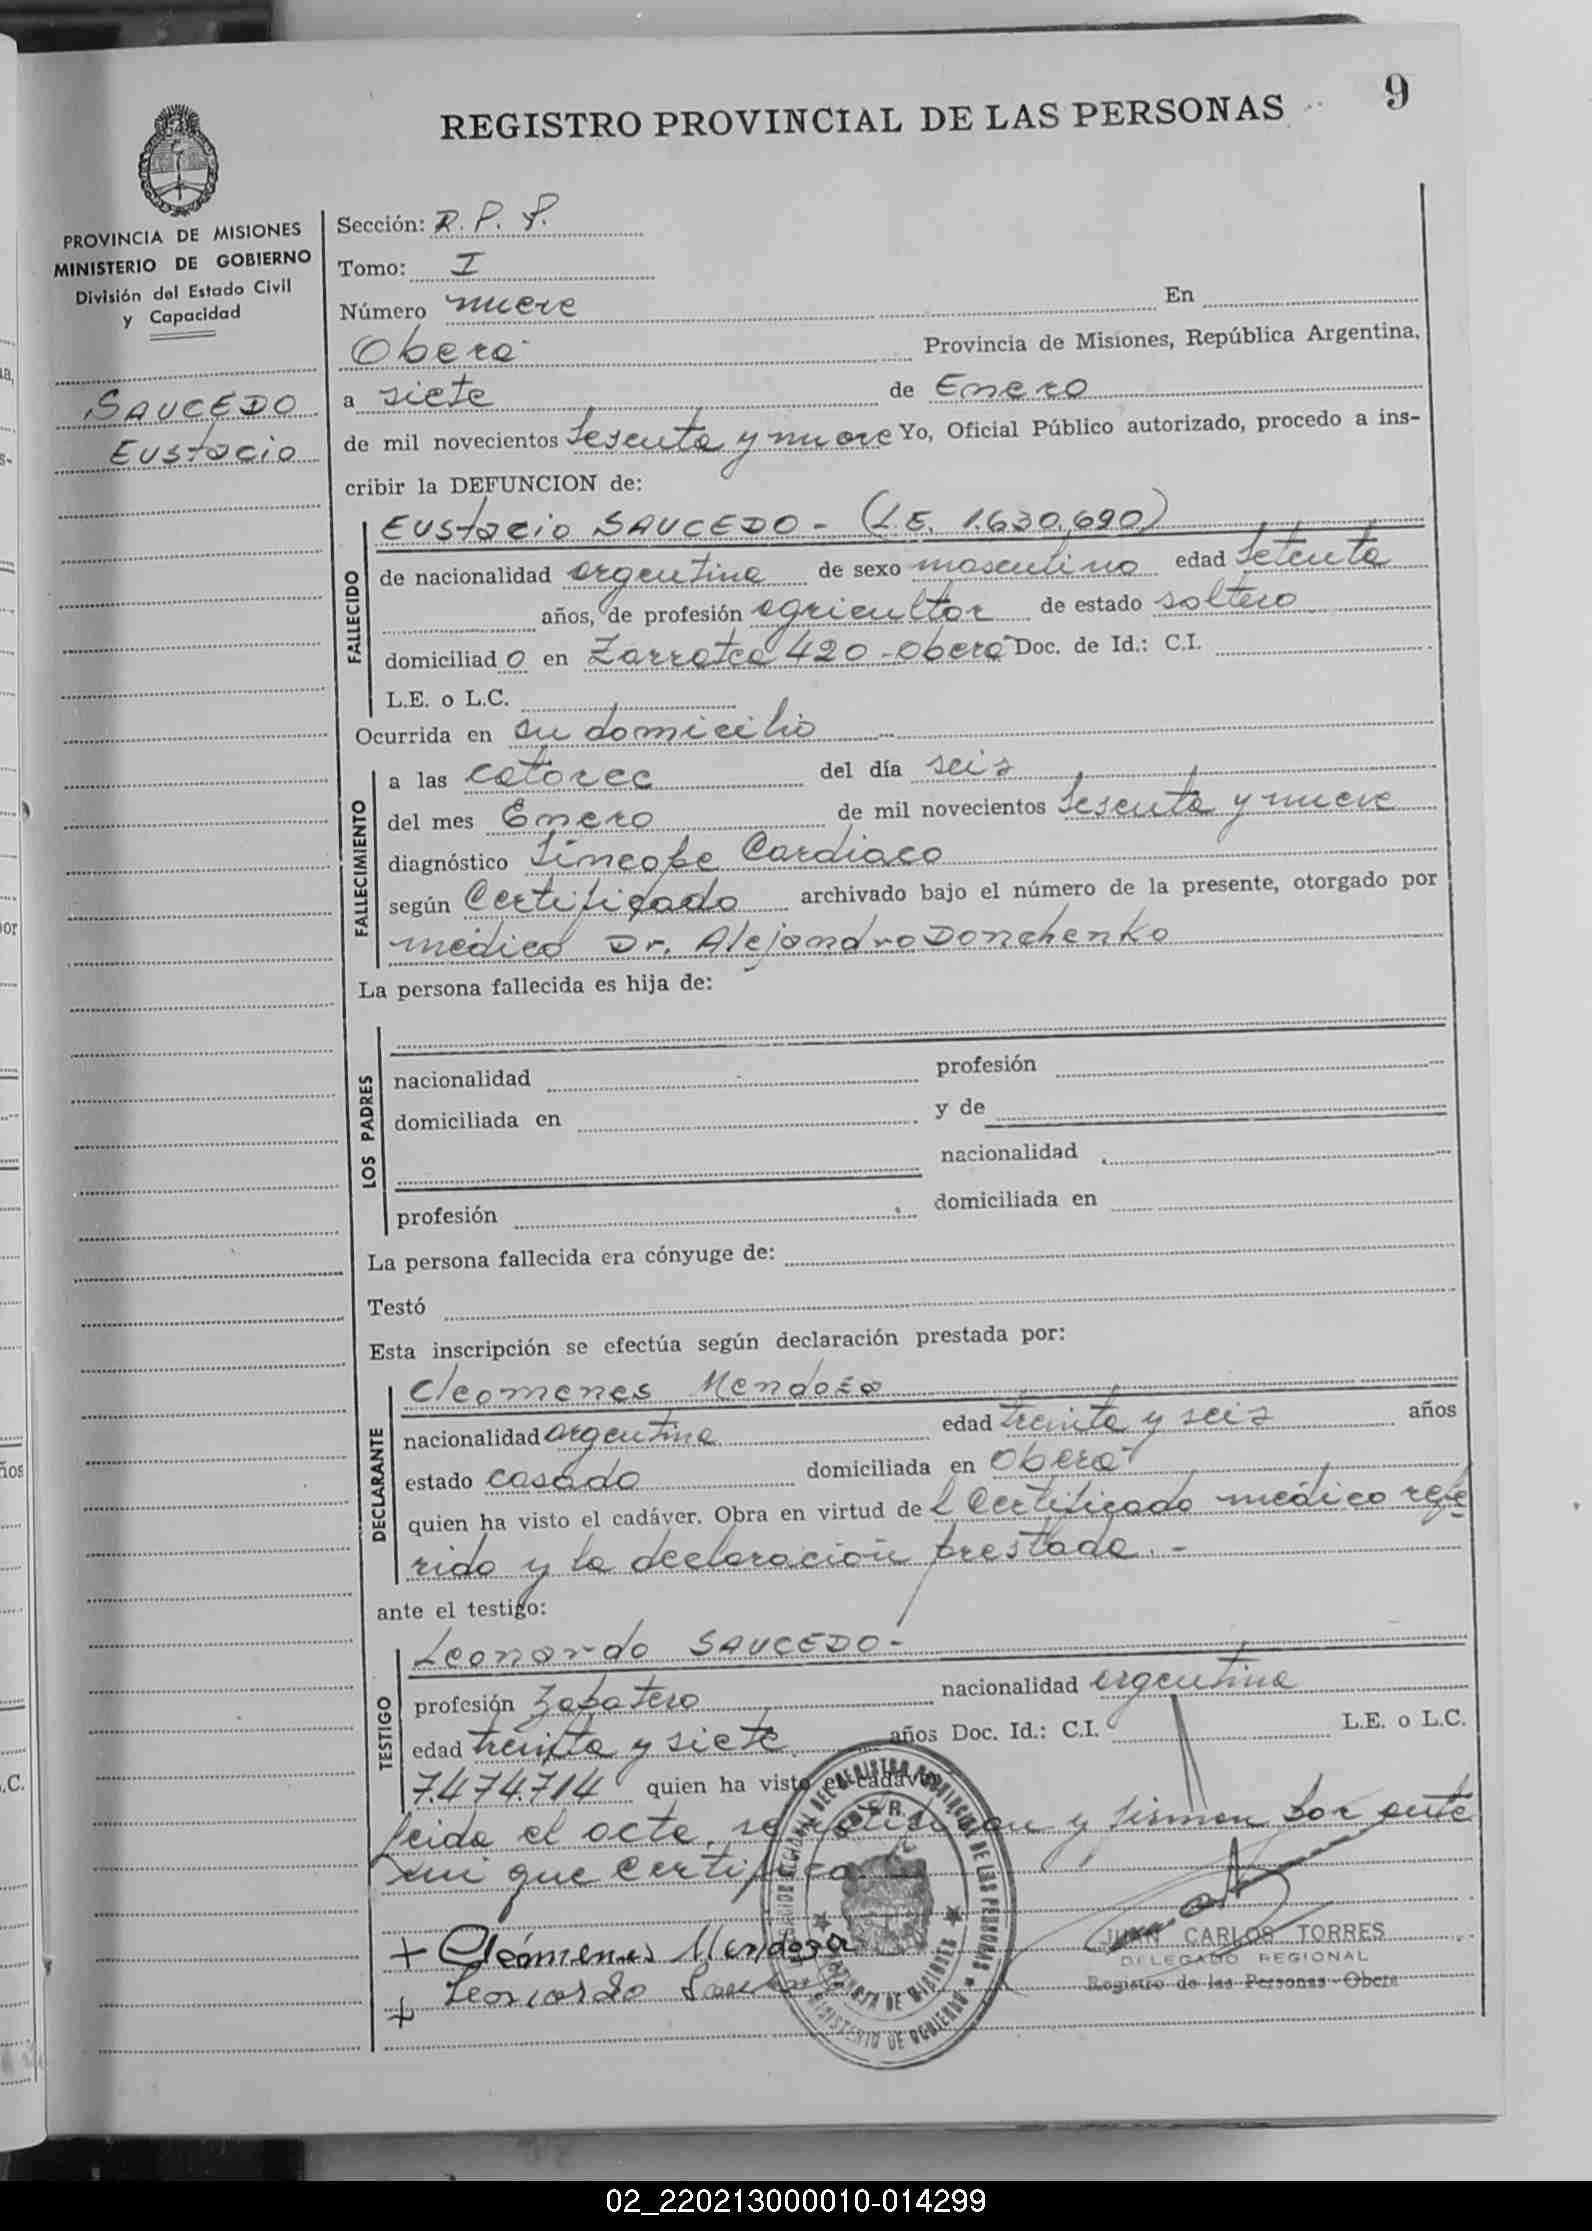 REGISTRO PROVINCIAL DE LAS PERSONAS
9
PROVINCIA DE MISIONES
MINISTERIO DE GOBIERNO
División del Estado Civil
y Capacidad
SAUCEDO
Eustacio
Sección: R. P. P.
Tomo: I
Número nueve En
Oberá Provincia de Misiones, República Argentina,
a siete de Enero
de mil novecientos sesenta y nueve Yo, Oficial Público autorizado, procedo a ins-
cribir la DEFUNCION de:
FALLECIDO
Eustacio SAUCEDO - (L.E. 1.630.690)
de nacionalidad argentina de sexo masculino edad setenta
años, de profesión agricultor de estado soltero
domiciliad o en Zarratea 420 - Oberá Doc. de Id.: C.I.
L.E. o L.C.
Ocurrida en su domicilio
FALLECIMIENTO
a las catorce del día seis
del mes Enero de mil novecientos sesenta y nueve
diagnóstico Síncope Cardiaco
según Certificado archivado bajo el número de la presente, otorgado por
médico Dr. Alejandro Donchenko
La persona fallecida es hija de:
LOS PADRES
nacionalidad profesión
domiciliada en y de
nacionalidad
profesión domiciliada en
La persona fallecida era cónyuge de:
Testó
Esta inscripción se efectúa según declaración prestada por:
DECLARANTE
Cleomenes Mendoza
nacionalidad argentina edad treinta y seis años
estado casado domiciliada en Oberá
quien ha visto el cadáver. Obra en virtud de l Certificado médico refe
rido y la declaración prestada. -
ante el testigo:
TESTIGO
Leonardo SAUCEDO -
profesión Zapatero nacionalidad argentina
edad treinta y siete años Doc. Id.: C.I. L.E. o L.C.
7.474.714 quien ha visto el cadáver
leida el acta, se ratifican y firman por ante
mi que certifico
+ Cleómenes Mendoza
+ Leonardo
JUAN CARLOS TORRES
DELEGADO REGIONAL
Registro de las Personas - Oberá
MINISTERIO DE GOBIERNO
02_220213000010-014299